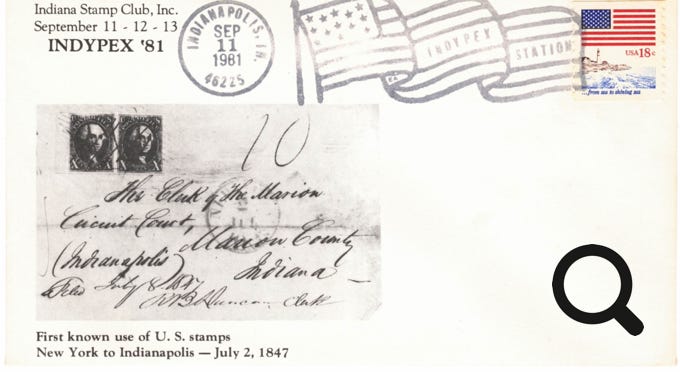 Indiana Stamp Club, Inc.
September 11 - 12 - 13
INDYPEX '81
INDIANAPOLIS, IN.
SEP
11
1981
46225
INDYPEX STATION
USA 18c
...from sea to shining sea
10
The Clerk of the Marion
Circuit Court,
Marion County
(Indianapolis)
Indiana
Filed July 8 1847
Clerk
First known use of U. S. stamps
New York to Indianapolis — July 2, 1847